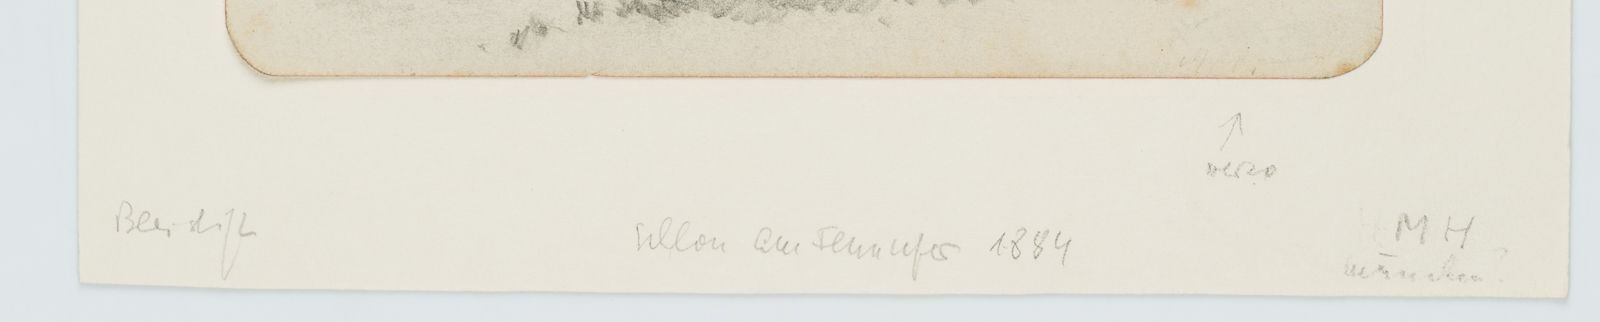 verso
Bleistift
Schloss am Seeufer 1884
M H
München?